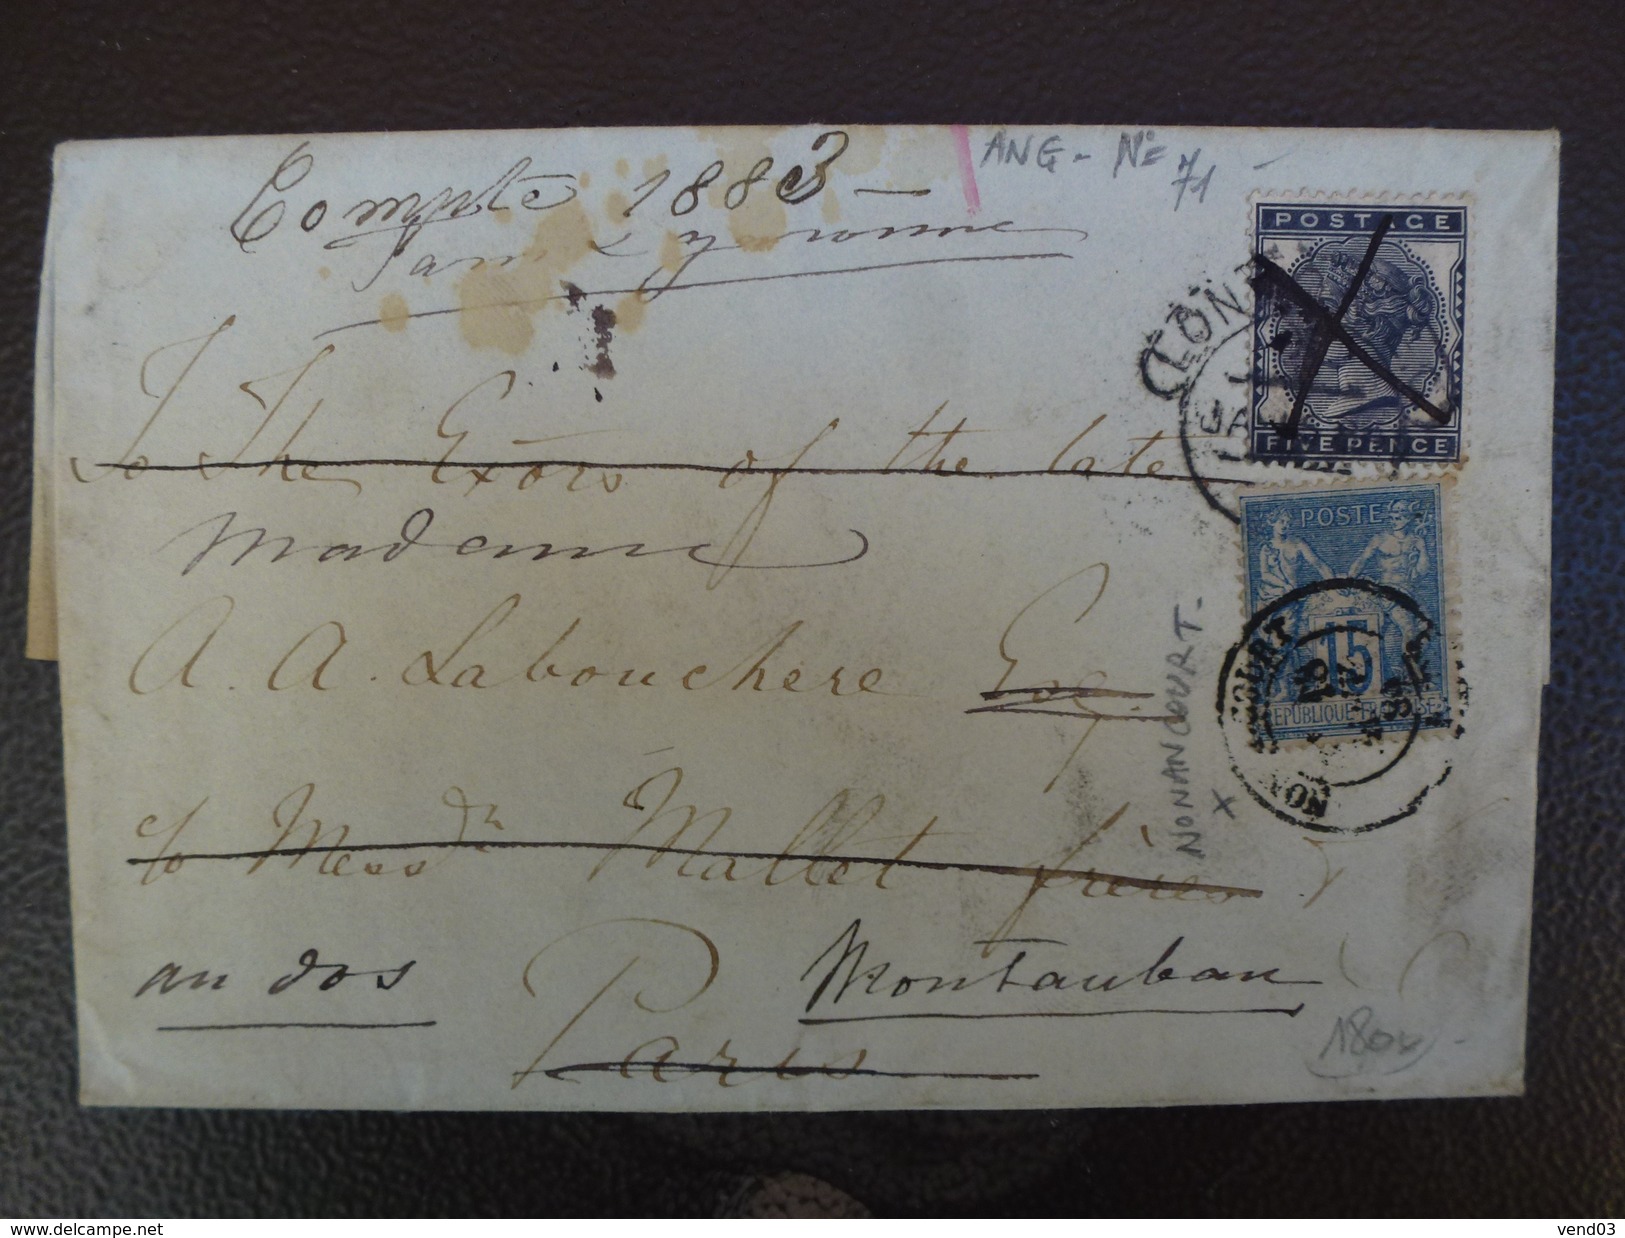 ANG - No 71
Compte 1883 —
POSTAGE
FIVE PENCE
To The Exors of the late
Madame
A. A. Labouchere Esq
c/o Messrs Mallet frères
au dos
Montauban
Paris
POSTE
15
REPUBLIQUE FRANÇAISE
NONANCOURT -
X
delcampe.net
vend03